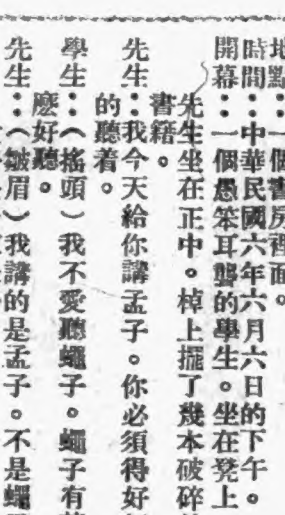 地點：一個書房裡面。
時間：中華民國六年六月六日的下午。
開幕：一個愚笨耳聾的學生。坐在凳上
先生坐在正中。棹上擺了幾本破碎
書籍。
先生：我今天給你講孟子。你必須得好
的聽着。
學生：（搖頭）我不愛聽蠅子。蠅子有
麽好聽。
先生：（皺眉）我講的是孟子。不是蠅